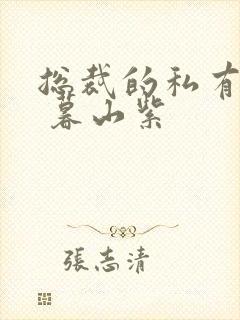 总裁的私有
暮山紫
張志清